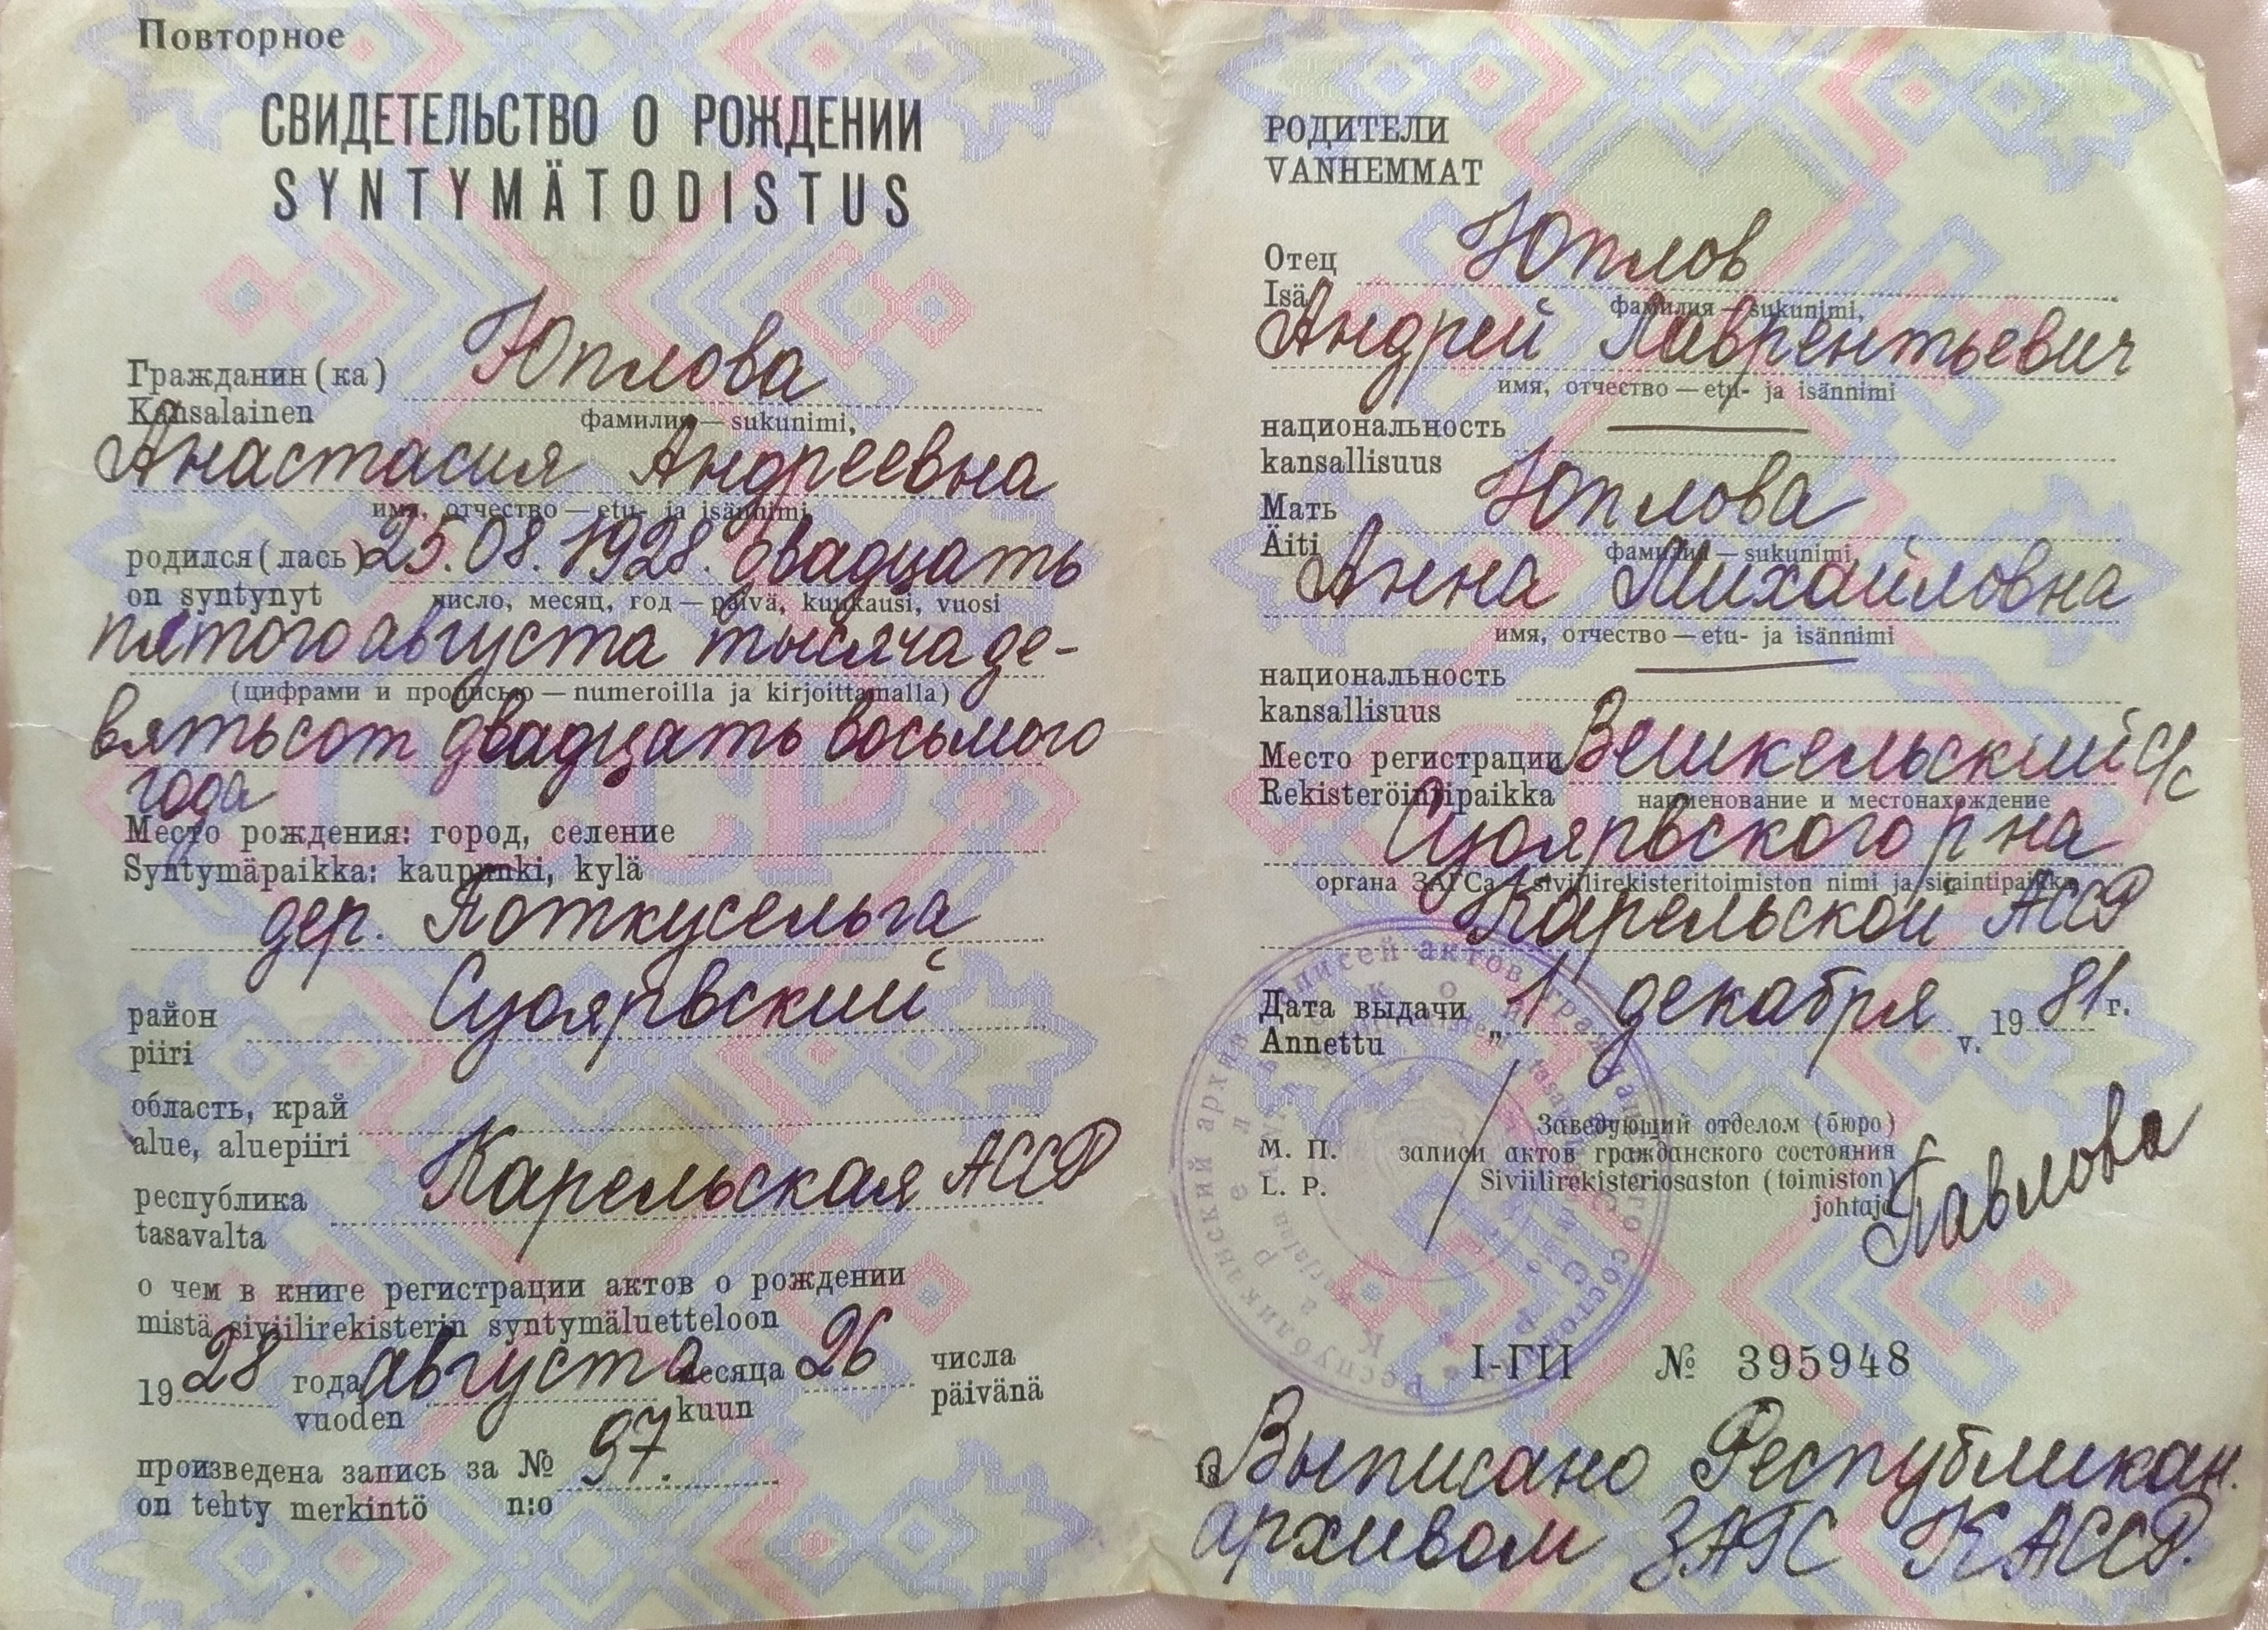 Повторное
СВИДЕТЕЛЬСТВО О РОЖДЕНИИ
SYNTYMÄTODISTUS
Гражданин(ка) Юплова
Kansalainen
фамилия — sukunimi,
Анастасия Андреевна
имя, отчество — etu- ja isännimi
родился(лась) 25.08.1928. двадцать
on syntynyt
число, месяц, год — päivä, kuukausi, vuosi
пятого августа тысяча де-
(цифрами и прописью — numeroilla ja kirjoittamalla)
вятьсот двадцать восьмого
года
Место рождения: город, селение
Syntymäpaikka: kaupunki, kylä
дер. Поткусельга
район Суоярвский
piiri
область, край
alue, aluepiiri
республика Карельская АССР
tasavalta
о чем в книге регистрации актов о рождении
mistä siviilirekisterin syntymäluetteloon
1928 года августа месяца 26 числа
vuoden kuun päivänä
произведена запись за № 97.
on tehty merkintö n:o
РОДИТЕЛИ
VANHEMMAT
Отец Юплов
Isä
фамилия — sukunimi,
Андрей Лаврентьевич
имя, отчество — etu- ja isännimi
национальность —
kansallisuus
Мать Юплова
Äiti
фамилия — sukunimi,
Анна Михайловна
имя, отчество — etu- ja isännimi
национальность —
kansallisuus
Место регистрации Вешкельский с/с
Rekisteröintipaikka
наименование и местонахождение
Суоярвского р-на
органа ЗАГСа — siviilirekisteritoimiston nimi ja sijaintipaikka
Карельской АССР
Дата выдачи „1" декабря 1981 г.
Annettu v.
Заведующий отделом (бюро)
М. П. записи актов гражданского состояния
L. P. Siviilirekisteriosaston (toimiston)
johtaja Павлова
I-ГИ № 395948
Выписано Республикан.
архивом ЗАГС КАССР.